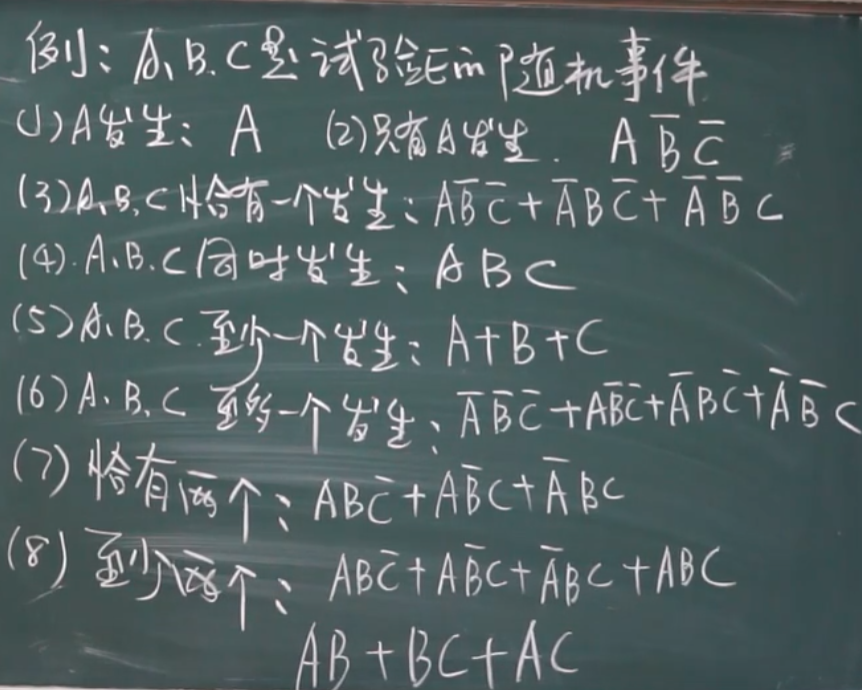 例: A、B、C是试验E的随机事件
(1) A发生: A (2) 只有A发生. A B̅ C̅
(3) A、B、C恰有一个发生: AB̅C̅ + A̅BC̅ + A̅ B̅ C
(4). A、B、C同时发生: A B C
(5) A、B、C 至少一个发生: A+B+C
(6) A、B、C 至多一个发生: A̅ B̅ C̅ + AB̅C̅ + A̅BC̅ + A̅ B̅ C
(7) 恰有两个: ABC̅ + AB̅C + A̅BC
(8) 至少两个: ABC̅ + AB̅C + A̅BC + ABC
AB + BC + AC